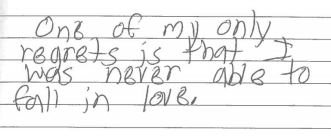 One of my only
regrets is that I
was never able to
fall in love.